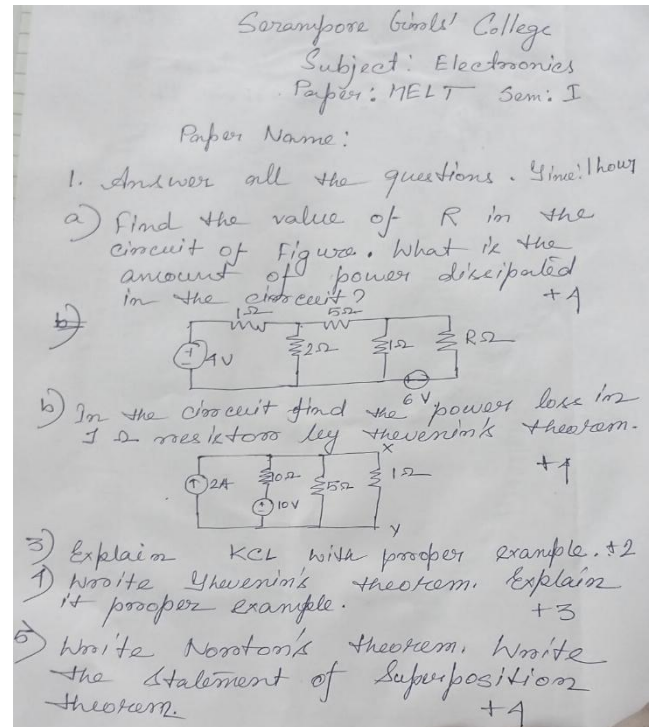 Serampore Girls' College
Subject: Electronics
Paper: MELT Sem: I
Paper Name:
1. Answer all the questions. Time: 1 hour
a) Find the value of R in the
circuit of Figure. What is the
amount of power discipated
in the circuit? +4
b)
1Ω 5Ω
4V 2Ω 1Ω RΩ
6V
b) In the circuit find the power loss in
1 Ω resistor by thevenin's theorem.
+4
X
2A 10Ω 5Ω 1Ω
10V
Y
3) Explain KCL with proper example. +2
4) Write Thevenin's theorem. Explain
it proper example. +3
5) Write Norton's theorem. Write
the statement of Superposition
theorem. +4